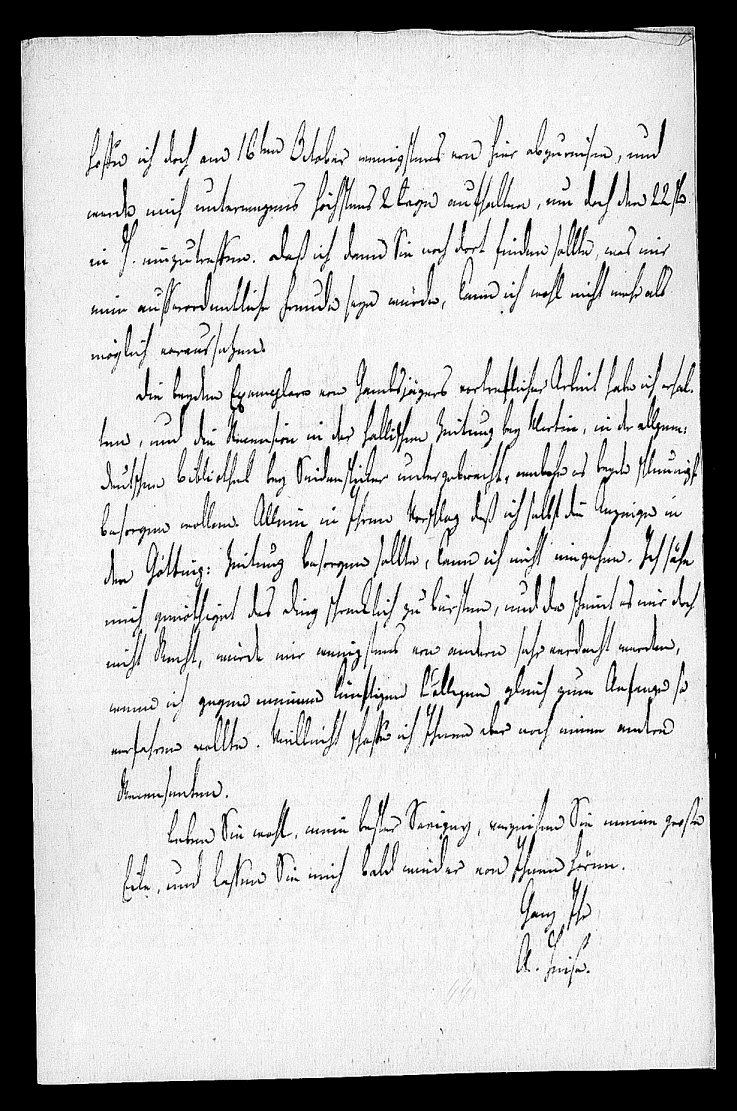 hoffe ich doch am 16ten October wenigstens von hier abzureisen, und
werde mich unterwegens höchstens 2 Tage aufhalten, um doch den 22st
in J. einzutreffen. Daß ich dann Sie noch dort finden sollte, was mir
eine aufserordentliche Freude seyn würde, kann ich wohl nicht mehr als
möglich voraussehen.
Die beyden Exemplare von Hambsjägers vortreflicher Arbeit habe ich erhal-
ten, und die Recension in der hallischen Zeitung bey Martin, in der allgem:
deutschen Bibliothek bey Seidensticker untergebracht, welche es beyde schleunigst
besorgen wollen. Allein in Ihren Vorschlag daß ich selbst die Anzeige in
der Götting: Zeitung besorgen sollte, kann ich nicht eingehen. Ich sähe
mich genöthiget das Ding schrecklich zu bürsten, und da scheint es mir doch
nicht Recht, würde mir wenigstens von andern sehr verdacht werden,
wenn ich gegen meinen künftigen Collegen gleich zum Anfange so
verfahren wollte. Vielleicht schaffe ich Ihnen aber noch einen andern
Recensenten.
Leben Sie wohl, mein bester Savigny, verzeihen Sie meine große
Eile, und lassen Sie mich bald wieder von Ihnen hören.
Ganz Ihr
A. Heise.